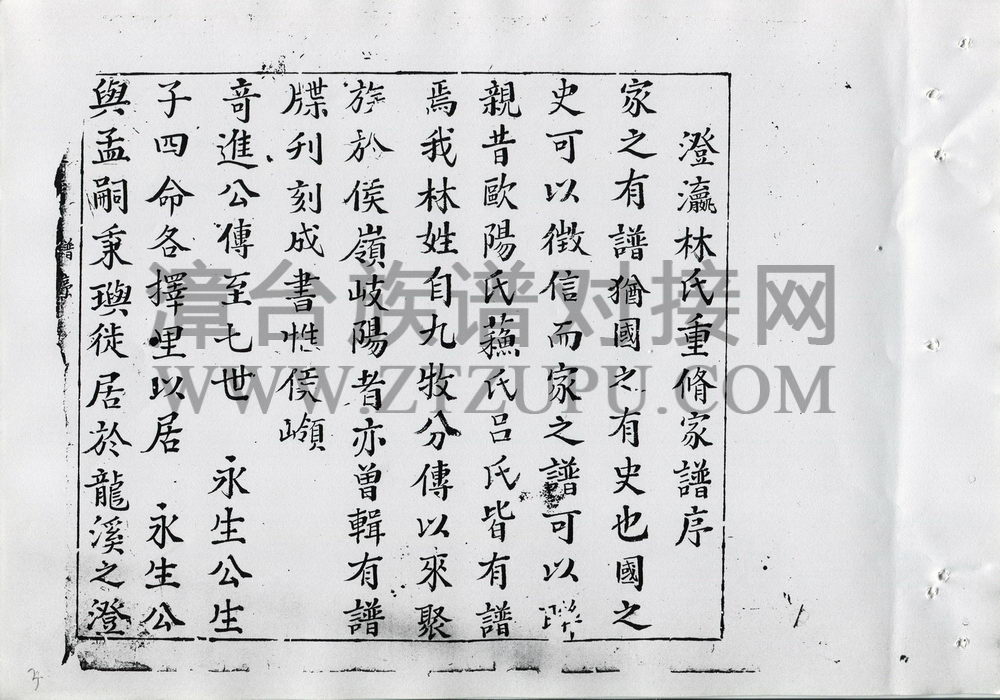 澄瀛林氏重脩家譜序
家之有譜猶國之有史也國之
史可以徵信而家之譜可以聯
親昔歐陽氏蘓氏呂氏皆有譜
焉我林姓自九牧分傳以來聚
族於侯嶺岐陽者亦曾輯有譜
牒刋刻成書惟侯嶺
竒進公傳至七世 永生公生
子四命各擇里以居 永生公
與孟嗣秉璵徙居於龍溪之澄
譜序
漳台族谱对接网
WWW.ZTZUPU.COM